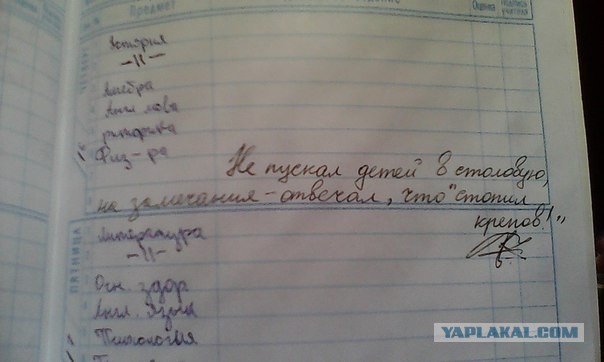 Предмет
Оценка
История
-II-
Алгебра
Англ мова
Физ-ра
Не пускал детей в столовую,
на замечания - отвечал, что "стопил
крепов!"
ПЯТНИЦА
Литература
-II-
Осн. здор
Англ. языка
YAPLAKAL.COM